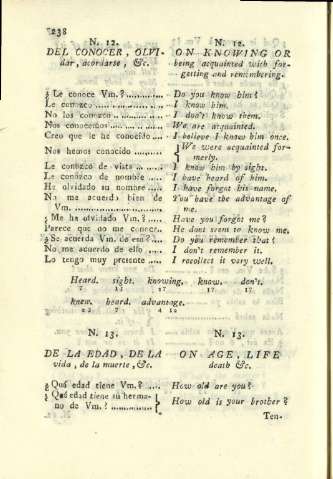 238
N. 12.
DEL CONOCER, OLVI-
dar, acordarse, &c.
N. 12.
ON KNOWING OR
being acquainted with for-
getting and remembering.
¿ Le conoce Vm.? ............ Do you know him?
Le conozco ..................... I know him.
No los conozco ............... I don't know them.
Nos conocemos ............... We are acquainted.
Creo que le he conocido ..... I believe I know him once.
Nos hemos conocido ......... { We were acquainted for-
merly.
Le conozco de vista ......... I know him by sight.
Le conozco de nombre ..... I have heard of him.
He olvidado su nombre ..... I have forgot his name.
No me acuerdo bien de
Vm. ........................
You have the advantage of
me.
¿ Me ha olvidado Vm.? ..... Have you forgot me?
Parece que no me conoce.. He dont seem to know me.
¿ Se acuerda Vm. de eso? .... Do you remember that?
No me acuerdo de ello ..... I don't remember it.
Lo tengo muy presente ..... I recollect it very well.
Heard. sight. knowing. know. don't.
knew. heard. advantage.
N. 13.
DE LA EDAD, DE LA
vida, de la muerte, &c.
N. 13.
ON AGE, LIFE
death &c.
¿ Qué edad tiene Vm.? .... How old are you?
¿ Qué edad tiene su herma-
no de Vm.? ............... } How old is your brother?
Ten-